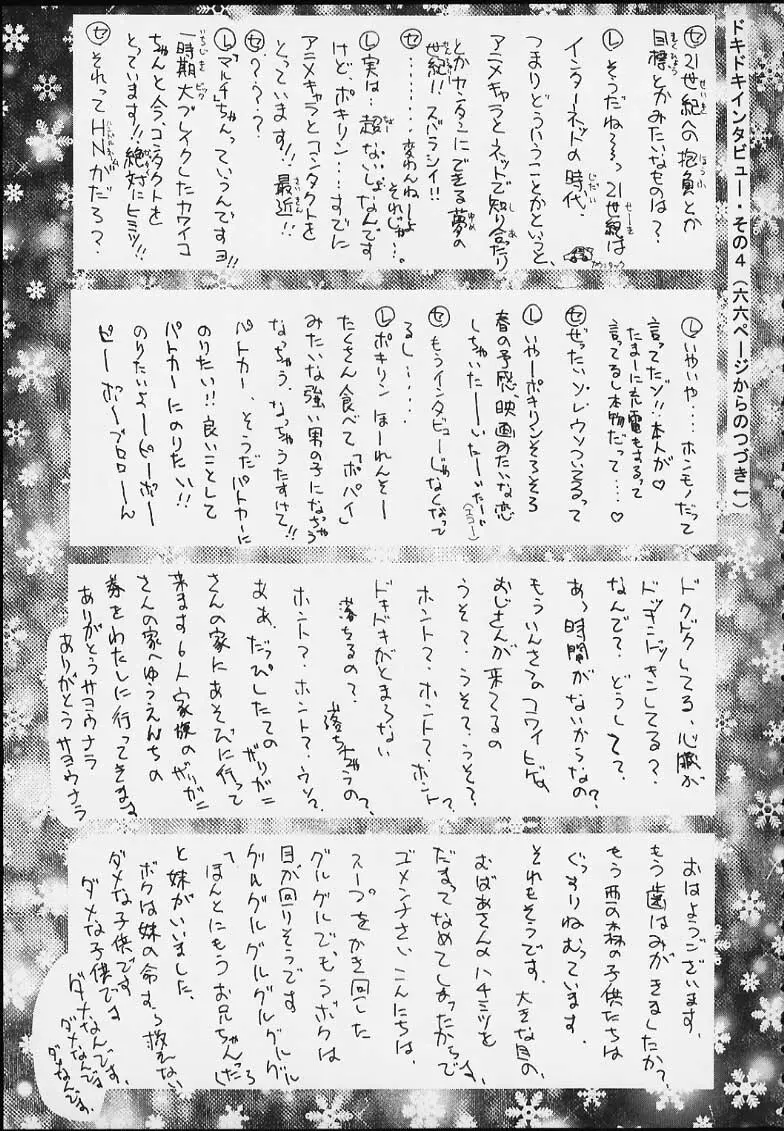 ドキドキインタビュー・その4(六六ページからのつづき←)
セ 21世紀への抱負とか
目標とかみたいなものは?
レ そうだね〜〜っ 21世紀は
インターネットの時代、
つまりどういうことかというと、
アニメキャラとネットで知り合ったり
とかカンタンにできる夢の
世紀!!ズバラシイ!!
セ ………変わんねーよ
それじゃ…。
レ 実は…超ないしょなんです
けど、ポキリン…すでに
アニメキャラとコンタクトを
とっています!!最近!!
セ ???
レ 「マルチ」ちゃんっていうんですヨ!!
一時期大ブレイクしたカワイコ
ちゃんと今、コンタクトを
とっています!!絶対にヒミツ!!
セ それってHNがだろ?
レ いやいや....ホンモノだって
言ってたゾ!!本人が♡
たまーに充電もするって
言ってるし本物だって....♡
セ ぜったいソレウソついてるって
レ いやーポキリンそろそろ
春の予感、映画みたいな恋
しちゃいたーいたーいたーい
(エコー)
セ もうインタビューじゃなくなって
るし……
レ ポキリン ほーれんそー
たくさん食べて「ポパイ」
みたいな強い男の子になっちゃう
なっちゃう、なっちゃうたすけて!!
パトカー、そうだパトカーに
のりたい!!良いことして
パトカーにのりたい!!
のりたいよーピーポー
ピーポーブロローん
ドクドクしてる、心臓が
ドッキンドッキンしてる?
なんで?どうして?
あっ時間がないからなの?
もういんさつのコワイヒゲ
おじさんが来てるの
うそ?、うそ?、うそ?
ホント?、ホント?、ホント?
ドキドキがとまらない
落ちるの?落ちちゃうの?
ホント?、ホント?、ウソ?
ああ、だっぴしたての ザリガニ
さんの家にあそびに行って
来ます6人家族のザリガニ
さんの家へゆうえんちの
券をわたしに行ってきます
ありがとうサヨウナラ
ありがとうサヨウナラ
おはようございます、
もう歯はみがきましたか?
もう西の森の子供たちは
ぐっすりねむっています、
それもそうです、大きな目の、
おばあさんのハチミツを
だまってなめてしまったからです、
ゴメンナさい、こんにちは、
スープをかき回した
グルグルでもうボクは
目が回りそうです
グルグルグルグルグルグル
「ほんとにもうお兄ちゃんったら」
と妹がいいました、
ボクは妹の命すら救えない
ダメな子供です
ダメな子供です
ダメなんです、
ダメなんです、
ダメなんです、